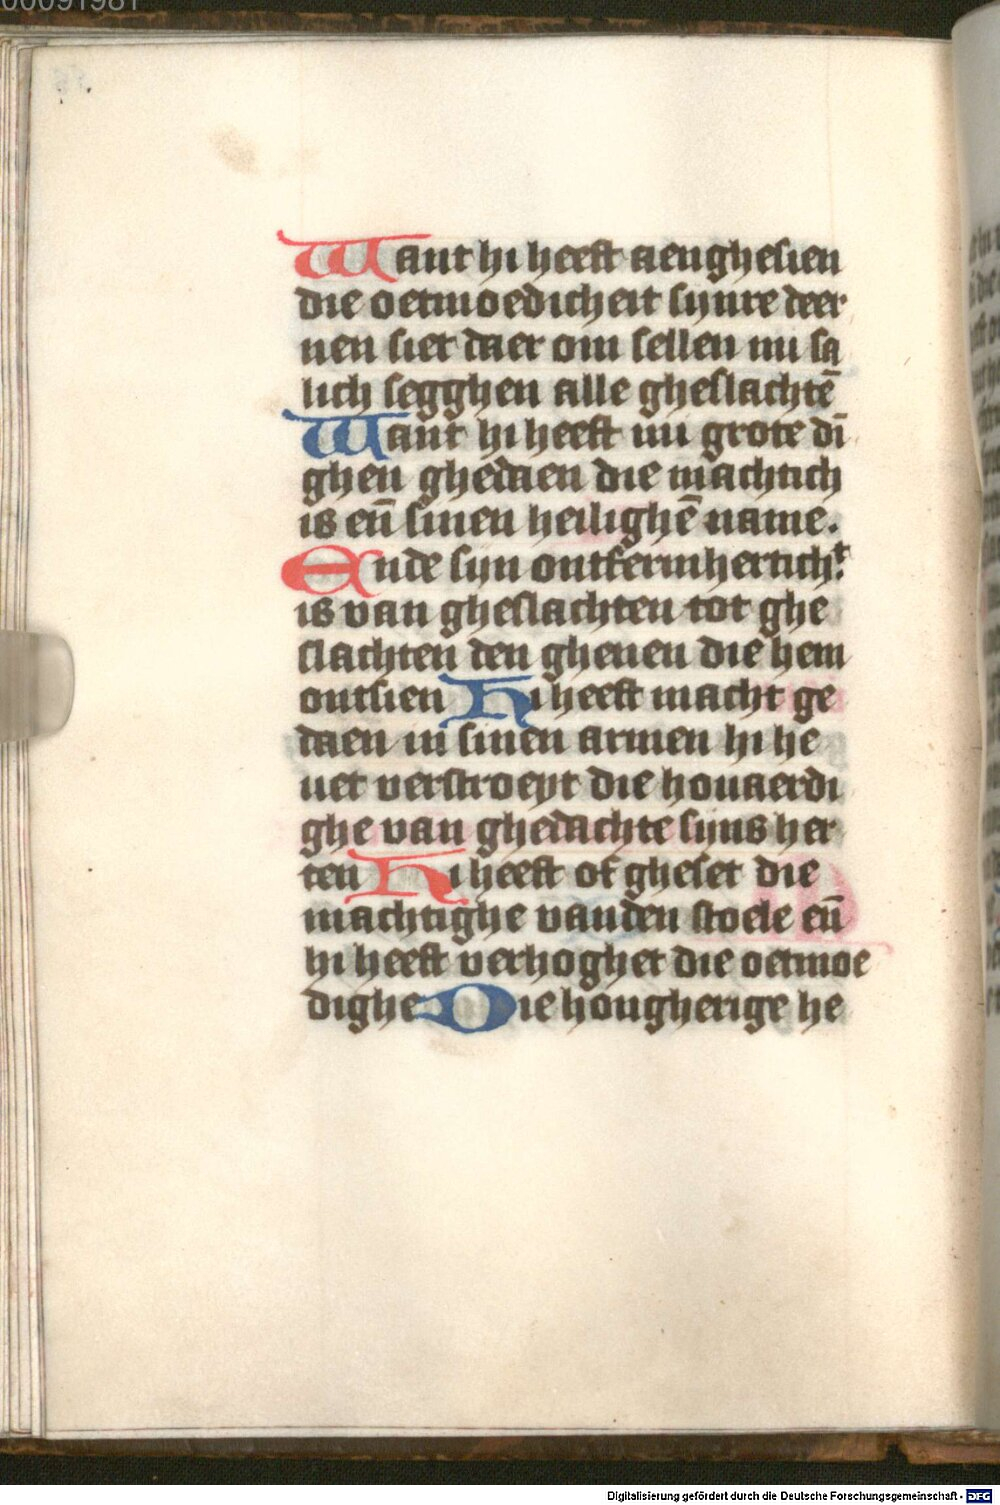 00091981
Want hi heeft aenghesien
die oetmoedicheit synre deer
nen siet daer om sellen mi sa
lich segghen alle gheslachtē
Want hi heeft mi grote dī
ghen ghedaen die machtich
is eñ sinen heilighē name.
Ende syn ontfermhertichᵗ.
is van gheslachten tot ghe
slachten den ghenen die hem
ontsien Hi heeft macht ge
daen in sinen armen hi he
uet verstroeyt die houaerdi
ghe van ghedachte sijns her
ten Hi heeft of gheset die
machtighe vanden stoele eñ
hi heeft verhoghet die oetmoe
dighe Die hongherige he
Digitalisierung gefördert durch die Deutsche Forschungsgemeinschaft - DFG